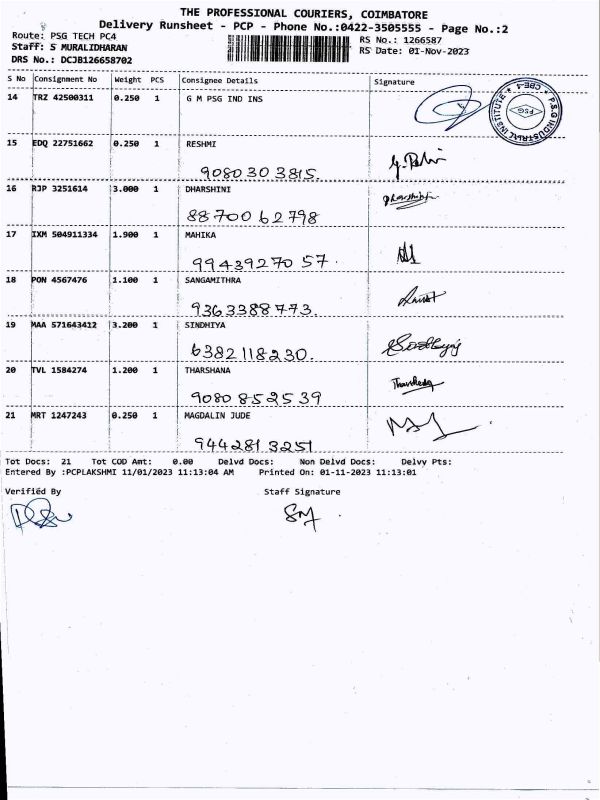 THE PROFESSIONAL COURIERS, COIMBATORE
Delivery Runsheet - PCP - Phone No.:0422-3505555 - Page No.:2
Route: PSG TECH PC4
RS No.: 1266587
Staff: S MURALIDHARAN
RS Date: 01-Nov-2023
DRS No.: DCJB126658702
S No Consignment No Weight PCS Consignee Details Signature
14 TRZ 42500311 0.250 1 G M PSG IND INS
P.S.G INDUSTRIAL INSTITUTE
PSG
CBE-4
15 EDQ 22751662 0.250 1 RESHMI
9080303815.
16 RJP 3251614 3.000 1 DHARSHINI
8870062798
17 IXM 504911334 1.900 1 MAHIKA
9943927057.
18 PON 4567476 1.100 1 SANGAMITHRA
9363388773.
19 MAA 571643412 3.200 1 SINDHIYA
6382118230.
20 TVL 1584274 1.200 1 THARSHANA
9080852539
21 MRT 1247243 0.250 1 MAGDALIN JUDE
9442813251
Tot Docs: 21 Tot COD Amt: 0.00 Delvd Docs: Non Delvd Docs: Delvy Pts:
Entered By :PCPLAKSHMI 11/01/2023 11:13:04 AM Printed On: 01-11-2023 11:13:01
Verified By Staff Signature